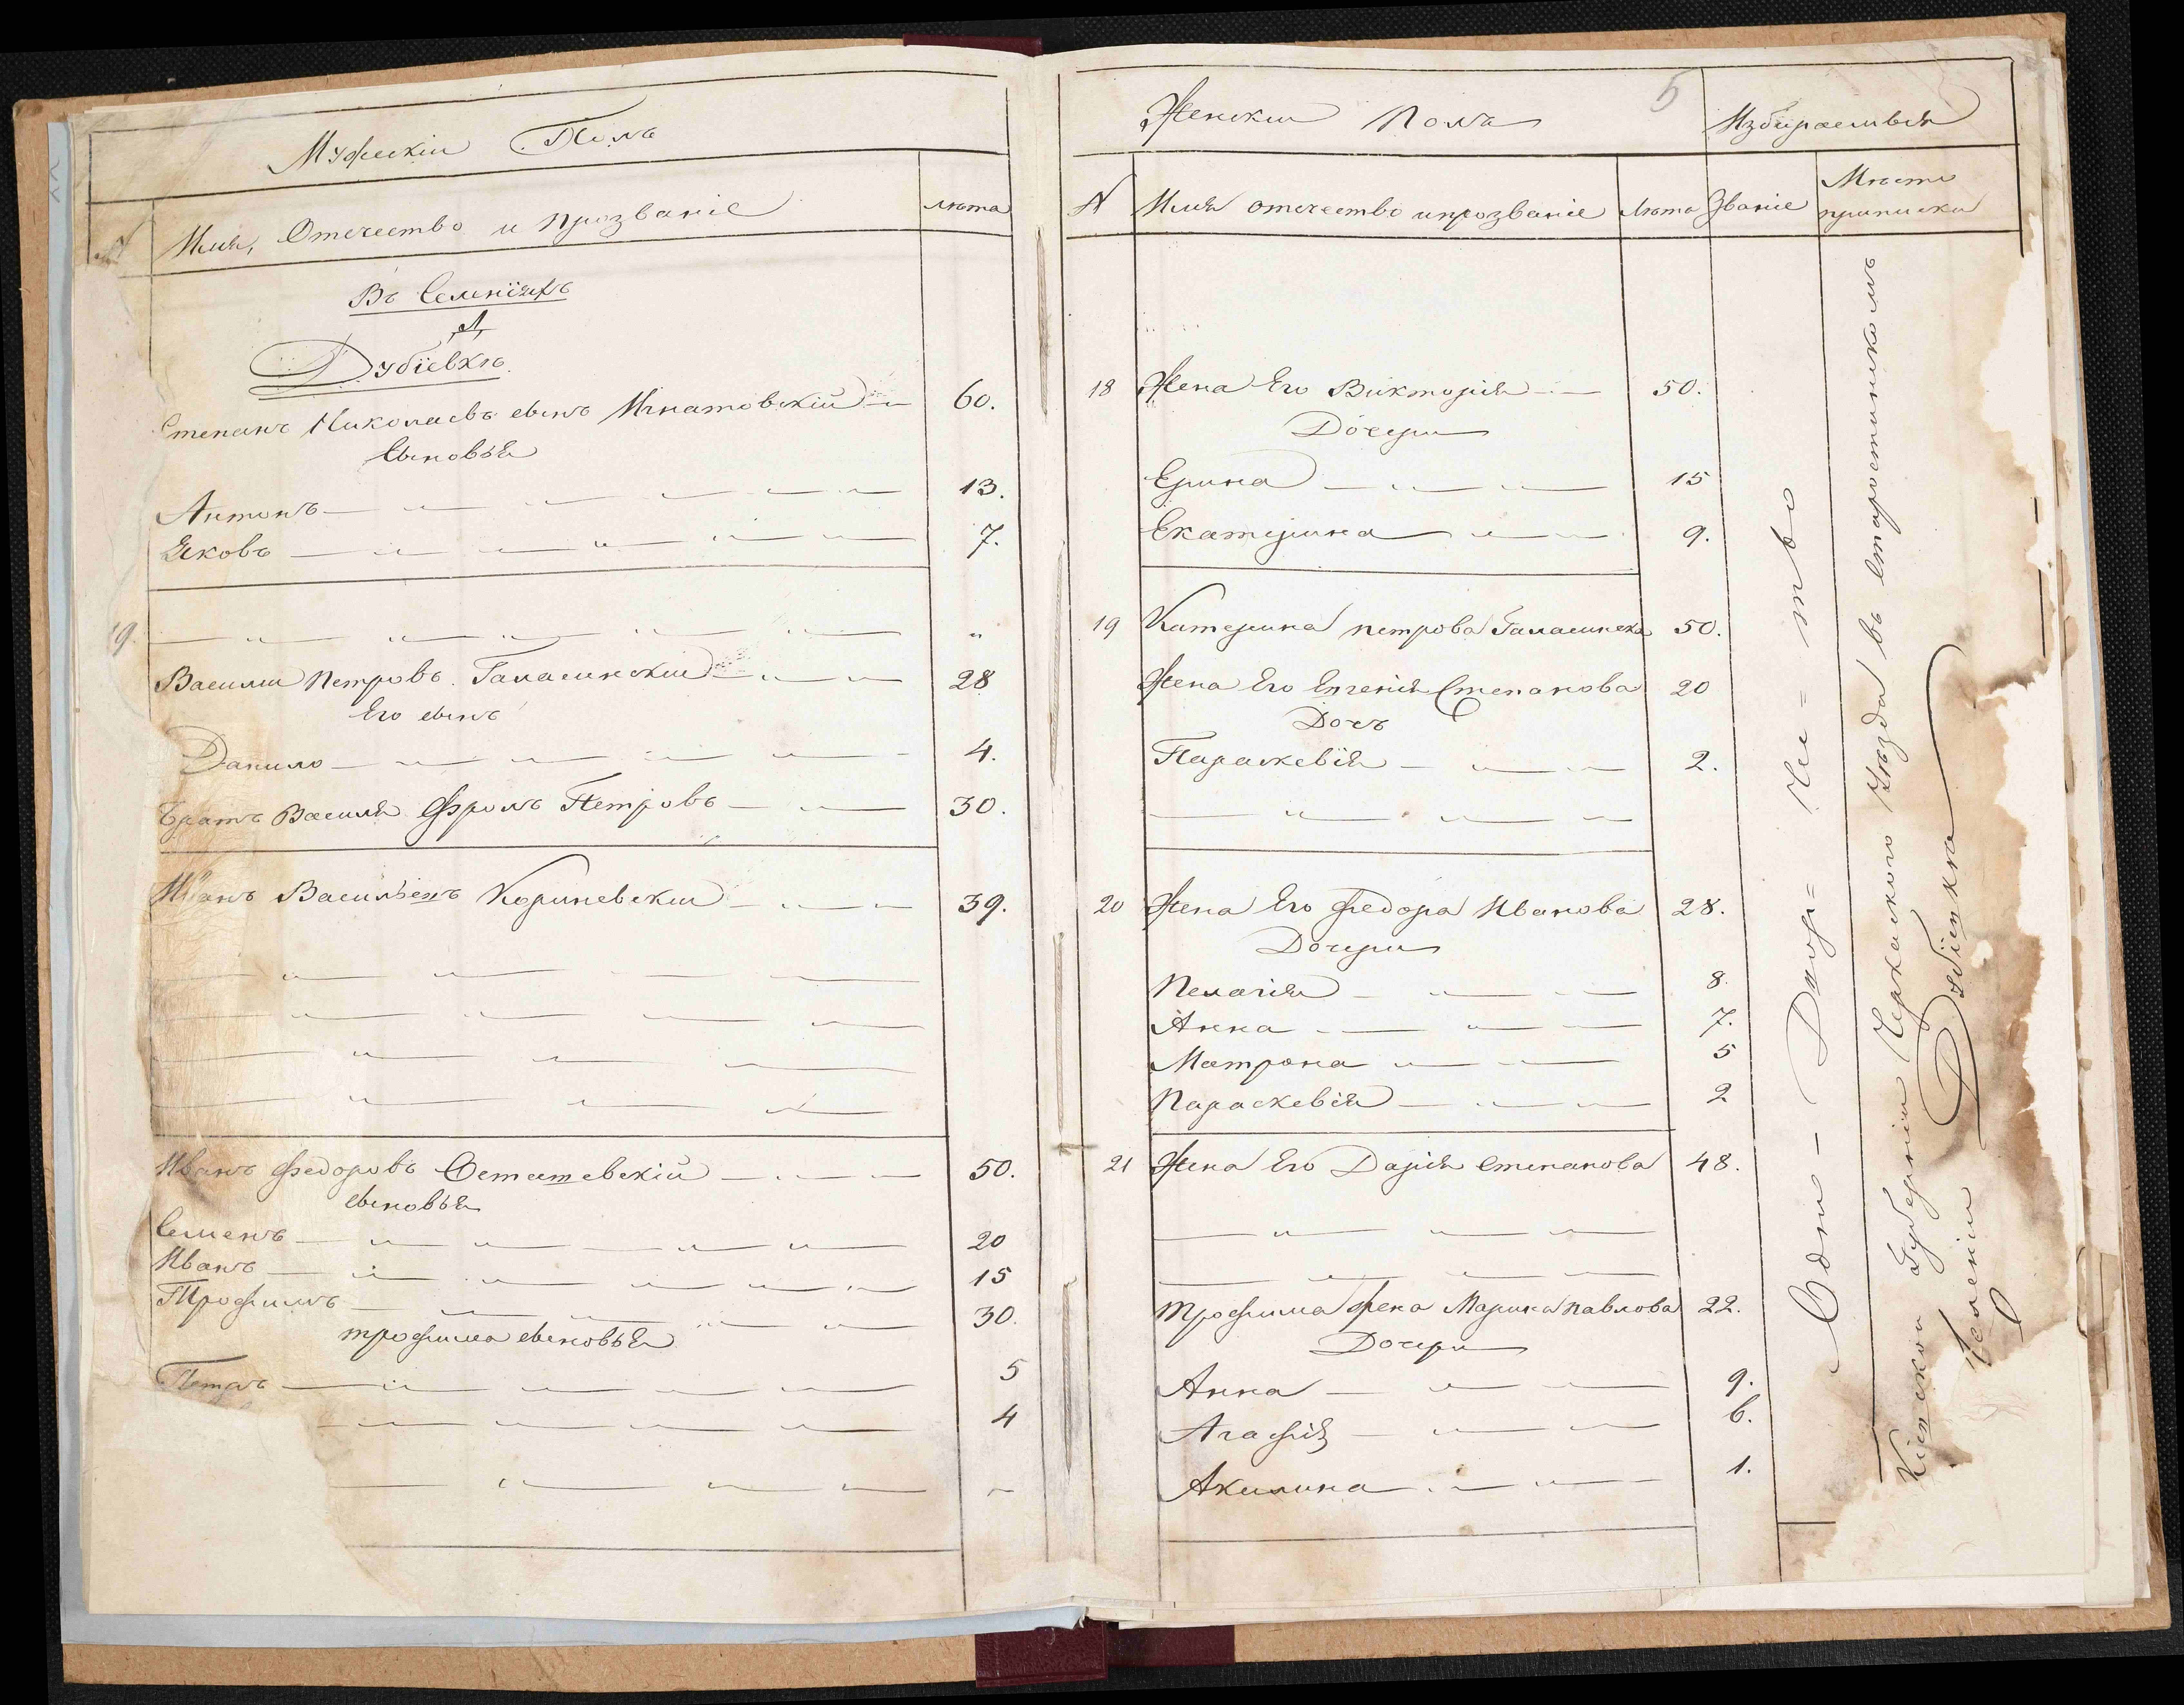 Мужескiй Полъ
N Имя, Отечество и прозванiе лѣта
Въ Селенiяхъ
Дубiевкѣ.
Степанъ Николаевъ сынъ Игнатовскiй 60.
Сыновья
Антонъ 13.
Яковъ 7.
19.
Василiй Петровъ Галасинскiй 28
Его сынъ
Данило 4.
Братъ Василя Фролъ Петровъ 30.
Иванъ Васильевъ Кориневскiй 39.
Иванъ Федоровъ Осташевскiй 50.
сыновья
Семенъ 20
Иванъ 15
Трофимъ 30.
трофима сыновья
Петръ 5
4
Женскiй Полъ 5 Избираемыя
N Имя отечество и прозванiе Лѣта Званiе Мѣсто приписки
18 Жена Его Викторiя 50.
Дочери
Ерина 15
Екатерина 9.
19 Катерина петрова Галасинска 50.
Жена Его Евгенiя Степанова 20
Дочъ
Параскевiя 2.
20 Жена Его Федора Иванова 28.
Дочери
Пелагiя 8.
Анна 7.
Матрона 5
Параскевiя 2
21 Жена Его Дарiя степанова 48.
трофима жена Марина павлова 22.
Дочери
Анна 9.
Агафiя 6.
Акилина 1.
Одно-Двор=че=тво
Кiевской Губернiи Черкаского Уѣзда въ старостинскомъ
селенiи Дубiевкѣ